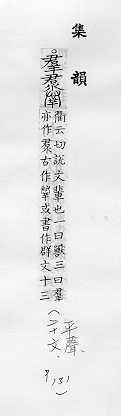 集韻
羣
衢云切說文輩也一曰獸三曰羣
亦作古作或書作群文十三
(平聲
二十文.
P.131)